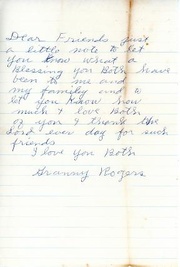 Dear Friends just
a little note to let
you know what a
blessing you Both have
been to me and
my family and to
let you know how
much I love Both
of you I thank the
Lord ever day for such
friends
I love you Both
Granny Rogers